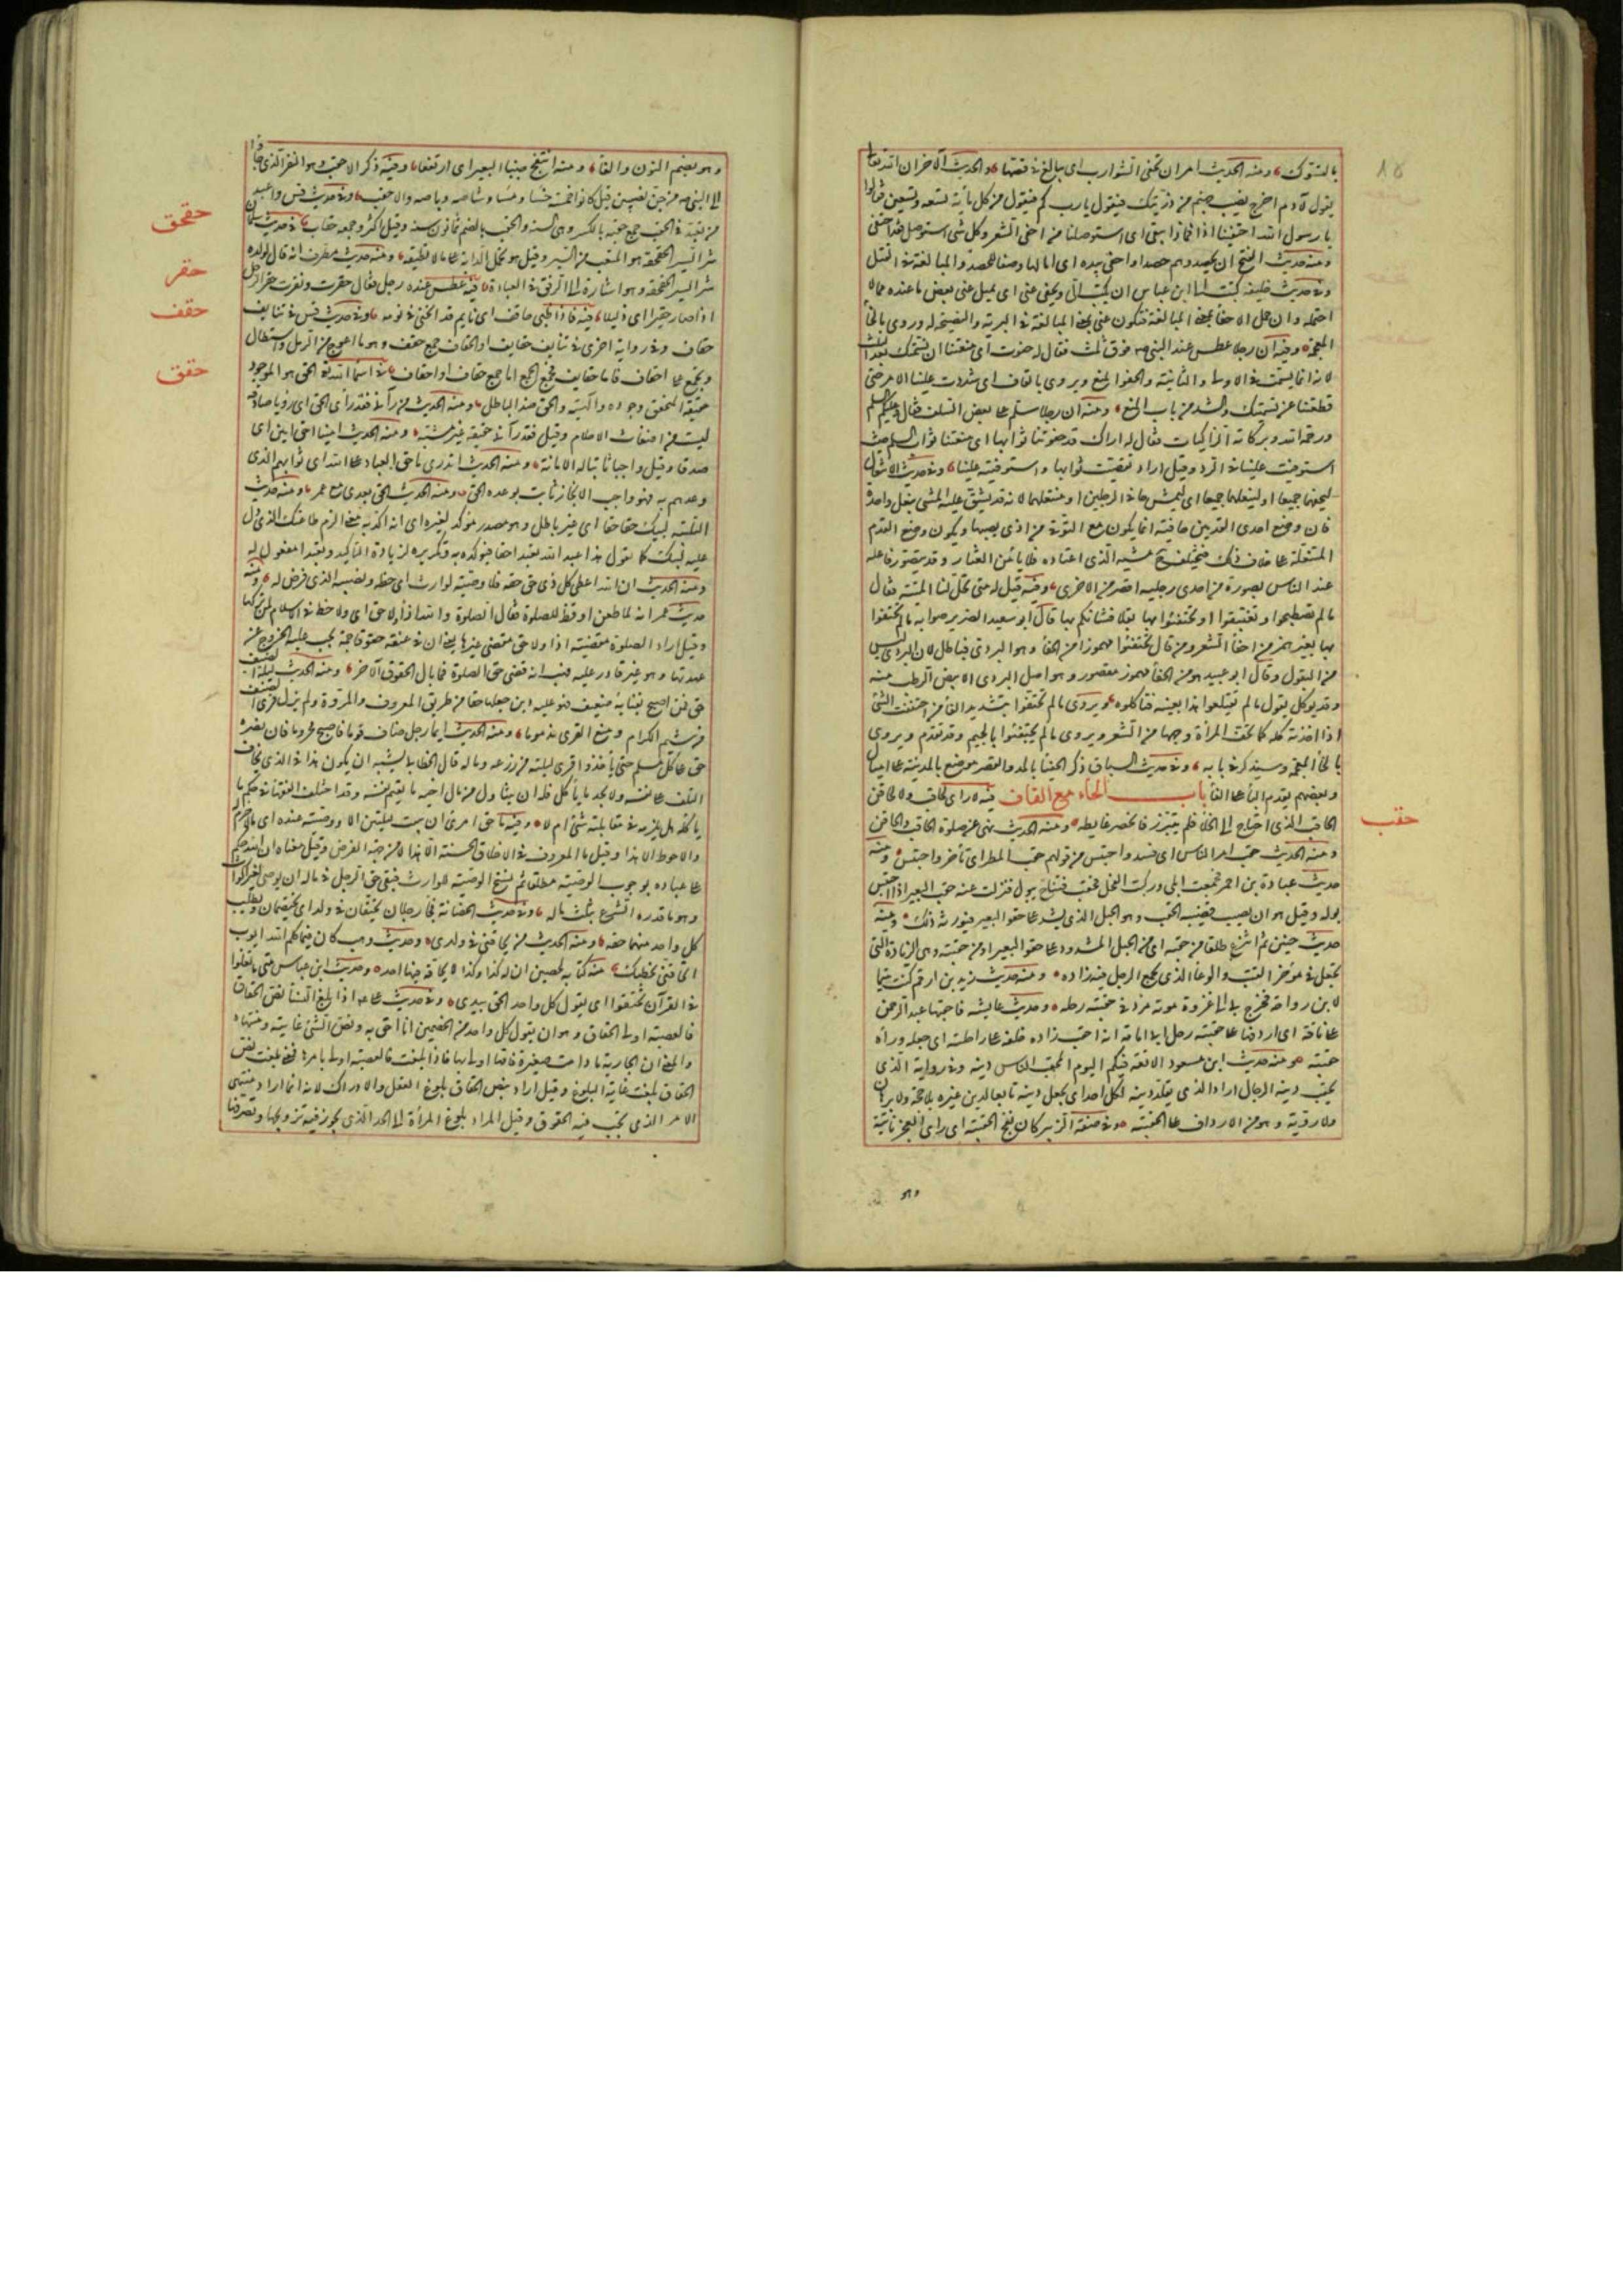 بالسواك ومنه الحديث امر ان تحفى الشوارب اى يبالغ فى قصها والحديث الآخر ان الله تعالى
يقول لآدم اخرج نصيب جهنم من ذريتك فيقول يارب كم فيقول من كل مائة تسعة وتسعين فقالوا
يا رسول الله احتفينا اذا فماذا يبقى اى استوصلنا من احفى الشعر وكل شى استوصل فقد احتفى
ومنه حديث الفتح ان يحصدوهم حصدا واحفى بيده اى امالها وصفا للحصد والمبالغة فى القتل
وفى حديث خليفة كتبت الى ابن عباس ان يكتب الى ويحفى عنى اى يمسك عنى بعض ما عنده مما لا
احتمله وان حمل الاحفا بمعنى المبالغة فيكون عنى بمعنى المبالغة فى البر به والنصيحة له وروى بالخاء
المعجمة وفيه ان رجلا عطس عند النبى فوق ثلث فقال له حفوت اى منعتنا ان نشمتك بعد الثلث
لانه انما يشمت فى الاولى والثانية والحفو المنع ويروى بالقاف اى شددت علينا الامر حتى
قطعتنا عن تشميتك والشد من باب المنع ومنه ان رجلا سلم على بعض السلف فقال وعليكم السلم
ورحمة الله وبركاته الزاكيات فقال له اراك قد حفوتنا ثوابها اى منعتنا ثواب السلم حيث
استوفيت علينا فى الرد وقيل اراد تقصيت ثوابها واستوفيته علينا وفى حديث الانتعال
ليحفهما جميعا او لينعلهما جميعا اى ليمش حافى الرجلين او منتعلهما لانه قد يشق عليه المشى بنعل واحدة
فان وضع احدى القدمين حافية انما يكون مع التوقى من اذى يصيبها ويكون وضع القدم
المنتعلة على خلاف ذلك فيختلف ح مشيه الذى اعتاده فلا يأمن العثار وقد يتصور فاعله
عند الناس بصورة من احدى رجليه اقصر من الاخرى وفيه قيل له متى تحل لنا الميتة فقال
ما لم تصطبحوا وتغتبقوا او تحتفئوا بها بقلا فشأنكم بها قال ابو سعيد الضرير صوابه ما لم تحتفوا
بها بغير همز من احفا الشعر ومن قال تحتفئوا مهموزا من الحفأ وهو البردى فباطل لان البردى ليس
من البقول وقال ابو عبيد هو من الحفأ مهموز مقصور وهو اصل البردى الابيض الرطب منه
وقد يؤكل يقول ما لم تقتلعوا هذا بعينه فتأكلوه ويروى ما لم تحتفوا بتشديد الفا من احتففت الشئ
اذا اخذته كله كما تحف المرأة وجهها من الشعر ويروى ما لم تجتفئوا بالجيم وقد تقدم ويروى
بالخاء المعجمة وسيذكر فى بابه وفى حديث السباق ذكر الحفيا بالمد والقصر موضع بالمدينة على اميال
وبعضهم يقدم الياء على الفا باب الحاء مع القاف فيه لا راى لحاقب ولا لحاقن
الحاقب الذى احتاج الى الخلا فلم يتبرز فانحصر غايطه ومنه الحديث نهى عن صلوة الحاقب والحاقن
ومنه الحديث حقب امر الناس اى فسد واحتبس من قولهم حقب المطر اى تأخر واحتبس ومنه
حديث عبادة بن احمر فجمعت ابلى وركبت الفحل فحقب فتفاج يبول فنزلت عنه حقب البعير اذا احتبس
بوله وقيل هو ان يصيب قضيبه الحقب وهو الحبل الذى يشد على حقو البعير فيورثه ذلك ومنه
حديث حنين ثم انتزع طلقا من حقبه اى من الحبل المشدود على حقو البعير او من حقيبته وهى الزيادة التى
تجعل فى مؤخر القتب والوعا الذى يجمع الرجل فيه زاده ومنه حديث زيد بن ارقم كنت يتيما
لابن رواحة فخرج بى الى غزوة موتة مردفى على حقيبة رحله وحديث عايشة فاحقبها عبد الرحمن
على ناقة اى اردفها على حقيبة رحل ابى امامة انه احقب زاده خلفه على راحلته اى جعله وراه
حقيبة ومنه حديث ابن مسعود الامعة فيكم اليوم المحقب الناس دينه وفى رواية الذى
يحقب دينه الرجال اراد الذى يقلد دينه لكل احد اى يجعل دينه تابعا لدين غيره بلا حجة ولا برهان
ولا روية وهو من الارداف على الحقيبة وفى صفة الزبير كان نفج الحقيبة اى رابى العجز ناتئه
حقب
وهو
وهو بضم النون والفا ومنه انتفج جنبا البعير اى ارتفعا وفيه ذكر الاحقب وهو احد النفر الذى جاؤا
الى النبى من جن نصيبين قيل كانوا خمسة خسا ومسا وشاصه وباصه والاحقب وفى حديث قس واعبد
من تعبد فى الحقب جمع حقبة بالكسر وهى السنة والحقب بالضم ثمانون سنة وقيل اكثر وجمعه حقاب فى حديث سلمان
شر السير الحقحقة هو المتعب من السير وقيل هو تحمل الدابة على ما لا تطيقه ومنه حديث مطرف انه قال لولده
شر السير الحقحقة وهو اشارة الى الرفق فى العبادة فيه عطس عنده رجل فقال حقرت ونقرت حقر الرجل
اذا صار حقيرا اى ذليلا فيه فاذا ظبى حاقف اى نايم قد انحنى فى نومه وفى حديث قس فى تنايف
حقاف وفى رواية اخرى فى تنايف حقايف او الحقاف جمع حقف وهو ما اعوج من الرمل واستطال
ويجمع على احقاف فاما حقايف فجمع الجمع اما جمع حقاف او احقاف فى اسما الله تعالى الحق هو الموجود
حقيقة المتحقق وجوده والهيته والحق ضد الباطل ومنه الحديث من رآنى فقد رأى الحق اى رؤيا صادقة
ليست من اضغاث الاحلام وقيل فقد رآنى حقيقة غير مشبه ومنه الحديث امينا حق امين اى
صدقا وقيل واجبا ثابتا له الامانة ومنه الحديث اتدرى ما حق العباد على الله اى ثوابهم الذى
وعدهم به فهو واجب الانجاز ثابت بوعده الحق ومنه الحديث الحق بعدى مع عمر ومنه حديث
التلبية لبيك حقا حقا اى غير باطل وهو مصدر مؤكد لغيره اى انه اكد به معنى الزم طاعتك الذى دل
عليه لبيك كما تقول هذا عبد الله حقا فتؤكد به وتكريره لزيادة التأكيد وتعبدا مفعول له
ومنه الحديث ان الله اعطى كل ذى حق حقه فلا وصية لوارث اى حظه ونصيبه الذى فرض له ومنه
حديث عمر انه لما طعن اوقظ للصلوة فقال الصلوة والله اذا ولا حق اى ولا حظ فى الاسلام لمن تركها
وقيل اراد الصلوة مقضية اذا ولا حق مقضى غيرها يعنى ان فى عنقه حقوقا جمة يجب عليه الخروج عن
عهدتها وهو غير قادر عليه فهب انه قضى حق الصلوة فما بال الحقوق الآخر ومنه الحديث ليلة الضيف
حق فمن اصبح بفنائه ضيف فهو عليه دين جعلها حقا من طريق المعروف والمروة ولم يزل قرى الضيف
من شيم الكرام ومنع القرى مذموما ومنه الحديث ايما رجل ضاف قوما فاصبح محروما فان نصره
حق على كل مسلم حتى يأخذ قرى ليلته من زرعه وماله قال الخطابى يشبه ان يكون هذا فى الذى يخاف
التلف على نفسه ولا يجد ما يأكل فله ان يتناول من مال اخيه ما يقيم نفسه وقد اختلف الفقها فى حكم ما
ياكله هل يلزمه فى مقابلته شئ ام لا وفيه ما حق امرئ ان يبيت ليلتين الا ووصيته عنده اى ما الاحزم له
والاحوط الا هذا وقيل ما المعروف فى الاخلاق الحسنة الا هذا لا من جهة الفرض وقيل معناه ان الله حكم
على عباده بوجوب الوصية مطلقا ثم نسخ الوصية للوارث فبقى حق الرجل فى ماله ان يوصى لغير الوارث
وهو ما قدره الشرع بثلث ماله وفى حديث الحضانة فجا رجلان يحتقان فى ولد اى يختصمان ويطلب
كل واحد منهما حقه ومنه الحديث من يحاقنى فى ولدى وحديث وهب كان فيما كلم الله ايوب
اتحاقنى بخطئك منه كتابه لحصين ان له كذا وكذا لا يحاقه فيها احد وحديث ابن عباس متى ما تغلوا
فى القرآن تحتقوا اى يقول كل واحد الحق بيدى وفى حديث على اذا بلغ النسأ نص الحقاق
فالعصبة اولى الحقاق وهو ان يقول كل واحد من الخصمين انا احق به ونص الشئ غايته ومنتهاه
والمعنى ان الجارية ما دامت صغيرة فامها اولى بها فاذا بلغت فالعصبة اولى بامرها فمعنى بلغت نص
الحقاق بلغت غاية البلوغ وقيل اراد بنص الحقاق بلوغ العقل والادراك لانه انما اراد منتهى
الامر الذى تجب فيه الحقوق وقيل المراد بلوغ المرأة الى الحد الذى يجوز فيه تزويجها وتصرفها
حقحق
حقر
حقف
حقق